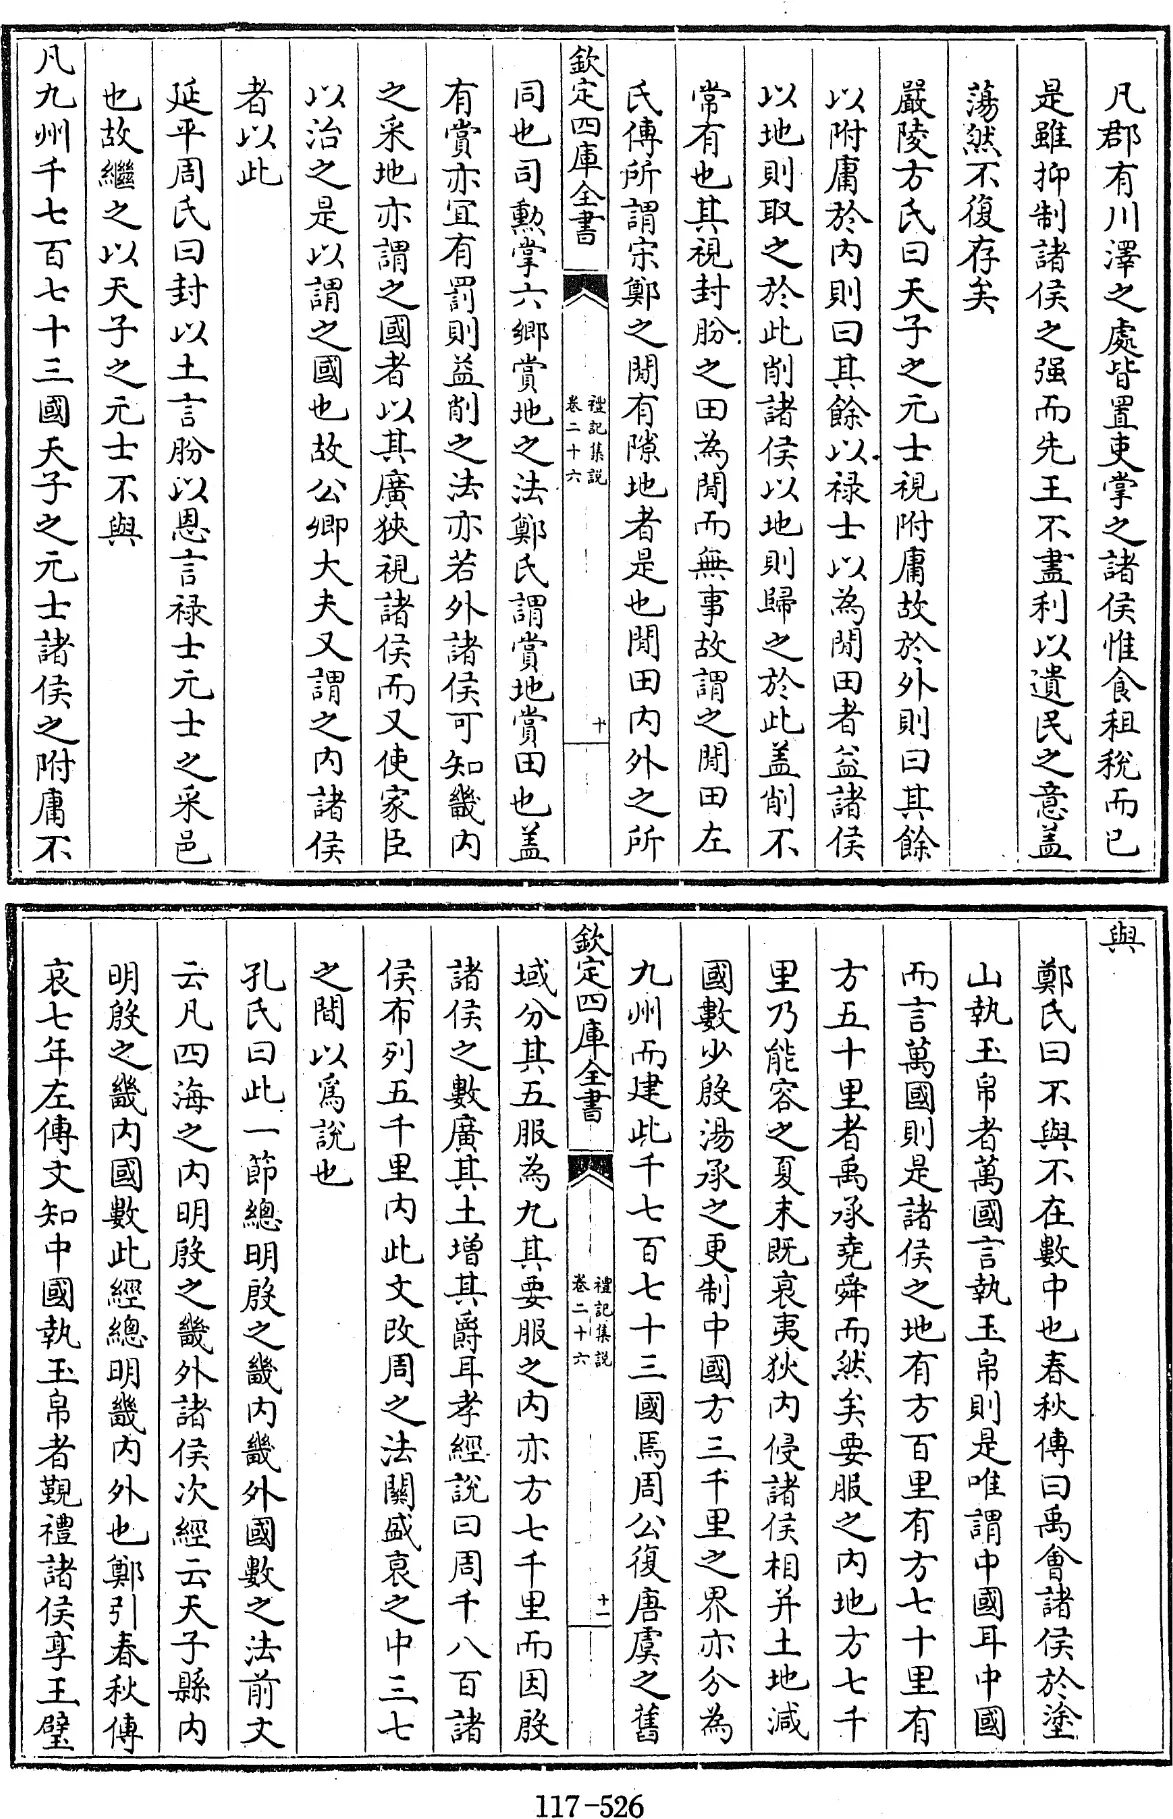 凡郡有川澤之處皆置吏掌之諸侯惟食租稅而已
是雖抑制諸侯之强而先王不盡利以遺民之意盖
蕩然不復存矣
嚴陵方氏曰天子之元士視附庸故於外則曰其餘
以附庸於内則曰其餘以禄士以為閒田者益諸侯
以地則取之於此削諸侯以地則歸之於此盖削不
常有也其視封朌之田為閒而無事故謂之閒田左
氏傳所謂宋鄭之閒有隙地者是也閒田内外之所
欽定四庫全書
禮記集説
卷二十六
十
同也司勲掌六鄉賞地之法鄭氏謂賞地賞田也盖
有賞亦宜有罰則益削之法亦若外諸侯可知畿内
之采地亦謂之國者以其廣狹視諸侯而又使家臣
以治之是以謂之國也故公卿大夫又謂之内諸侯
者以此
延平周氏曰封以土言朌以恩言禄士元士之采邑
也故繼之以天子之元士不與
凡九州千七百七十三國天子之元士諸侯之附庸不
與
鄭氏曰不與不在數中也春秋傳曰禹會諸侯於塗
山執玉帛者萬國言執玉帛則是唯謂中國耳中國
而言萬國則是諸侯之地有方百里有方七十里有
方五十里者禹承堯舜而然矣要服之内地方七千
里乃能容之夏末既衰夷狄内侵諸侯相并土地減
國數少殷湯承之更制中國方三千里之界亦分為
九州而建此千七百七十三國焉周公復唐虞之舊
欽定四庫全書
禮記集説
卷二十六
十一
域分其五服為九其要服之内亦方七千里而因殷
諸侯之數廣其土增其爵耳孝經説曰周千八百諸
侯布列五千里内此文改周之法關盛衰之中三七
之間以爲説也
孔氏曰此一節總明殷之畿内畿外國數之法前文
云凡四海之内明殷之畿外諸侯次經云天子縣内
明殷之畿内國數此經總明畿内外也鄭引春秋傳
哀七年左傳文知中國執玉帛者覲禮諸侯享王璧
117-526